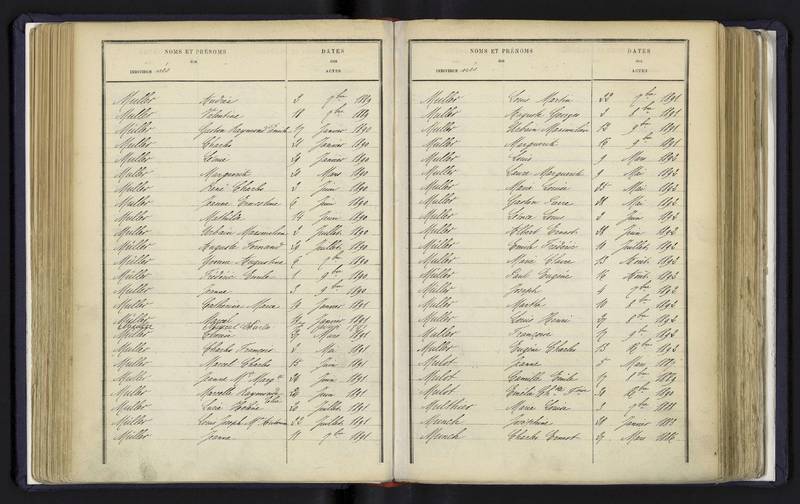 NOMS ET PRÉNOMS DATES
DES DES
INDIVIDUS nés ACTES
Muller Andrée 3 7bre 1889
Muller Valentine 18 9bre 1889
Muller Gaston Raymond Emile 17 Janvier 1890
Muller Charles 21 Janvier 1890
Muller Louise 29 Janvier 1890
Muller Marguerite 20 Mars 1890
Muller René Charles 3 Juin 1890
Muller Jeanne Ernestine 6 Juin 1890
Muller Mathilde 14 Juin 1890
Muller Urbain Maximilien 2 Juillet 1890
Muller Auguste Fernand 29 Juillet 1890
Muller Yvonne Augustine 6 7bre 1890
Muller Frédéric Emile 1 9bre 1890
Muller Jeanne 3 9bre 1890
Muller Catherine Marie 10 Janvier 1891
Muller Marcel Janvier 1891
Charles
Muller Mars 1891
Muller Charles François 2 Mai 1891
Muller Marcel Charles 15 Juin 1891
Muller Jeanne Mie Margte 24 Juin 1891
Muller Marcelle Raymonde 26 Juin 1891
Muller Lucie 20 Juillet 1891
Muller Louis Joseph 22 Juillet 1891
Muller Jeanne 11 7bre 1891
NOMS ET PRÉNOMS DATES
DES DES
INDIVIDUS nés ACTES
Muller Louis Martin 22 7bre 1891
Muller Auguste Georges 2 8bre 1891
Muller Urbain Maximilien 13 9bre 1891
Muller Marguerite 16 9bre 1891
Muller Louis 9 Mars 1892
Muller Marguerite 9 Mai 1892
Muller Marie Louise 25 Mai 1892
Muller Gaston Pierre 28 Mai 1892
Muller Louis 3 Juin 1892
Muller Albert Ernest 28 Juin 1892
Muller Emile Frédéric 10 Juillet 1892
Muller Marie Claire 13 Août 1892
Muller Paul Eugène 16 Août 1892
Muller Joseph 4 7bre 1892
Muller Marthe 10 8bre 1892
Muller Louis Henri 27 8bre 1892
Muller Françoise 17 9bre 1892
Muller Eugène Charles 13 Xbre 1892
Mulot Jeanne 5 Mars
Mulot Camille Emile 17 8bre 1889
Mulot Xbre 1890
Multhier Marie Louise 3 9bre 1888
Munch Joséphine 28 Janvier 1883
Munch Charles Ernest 27 Mars 1886